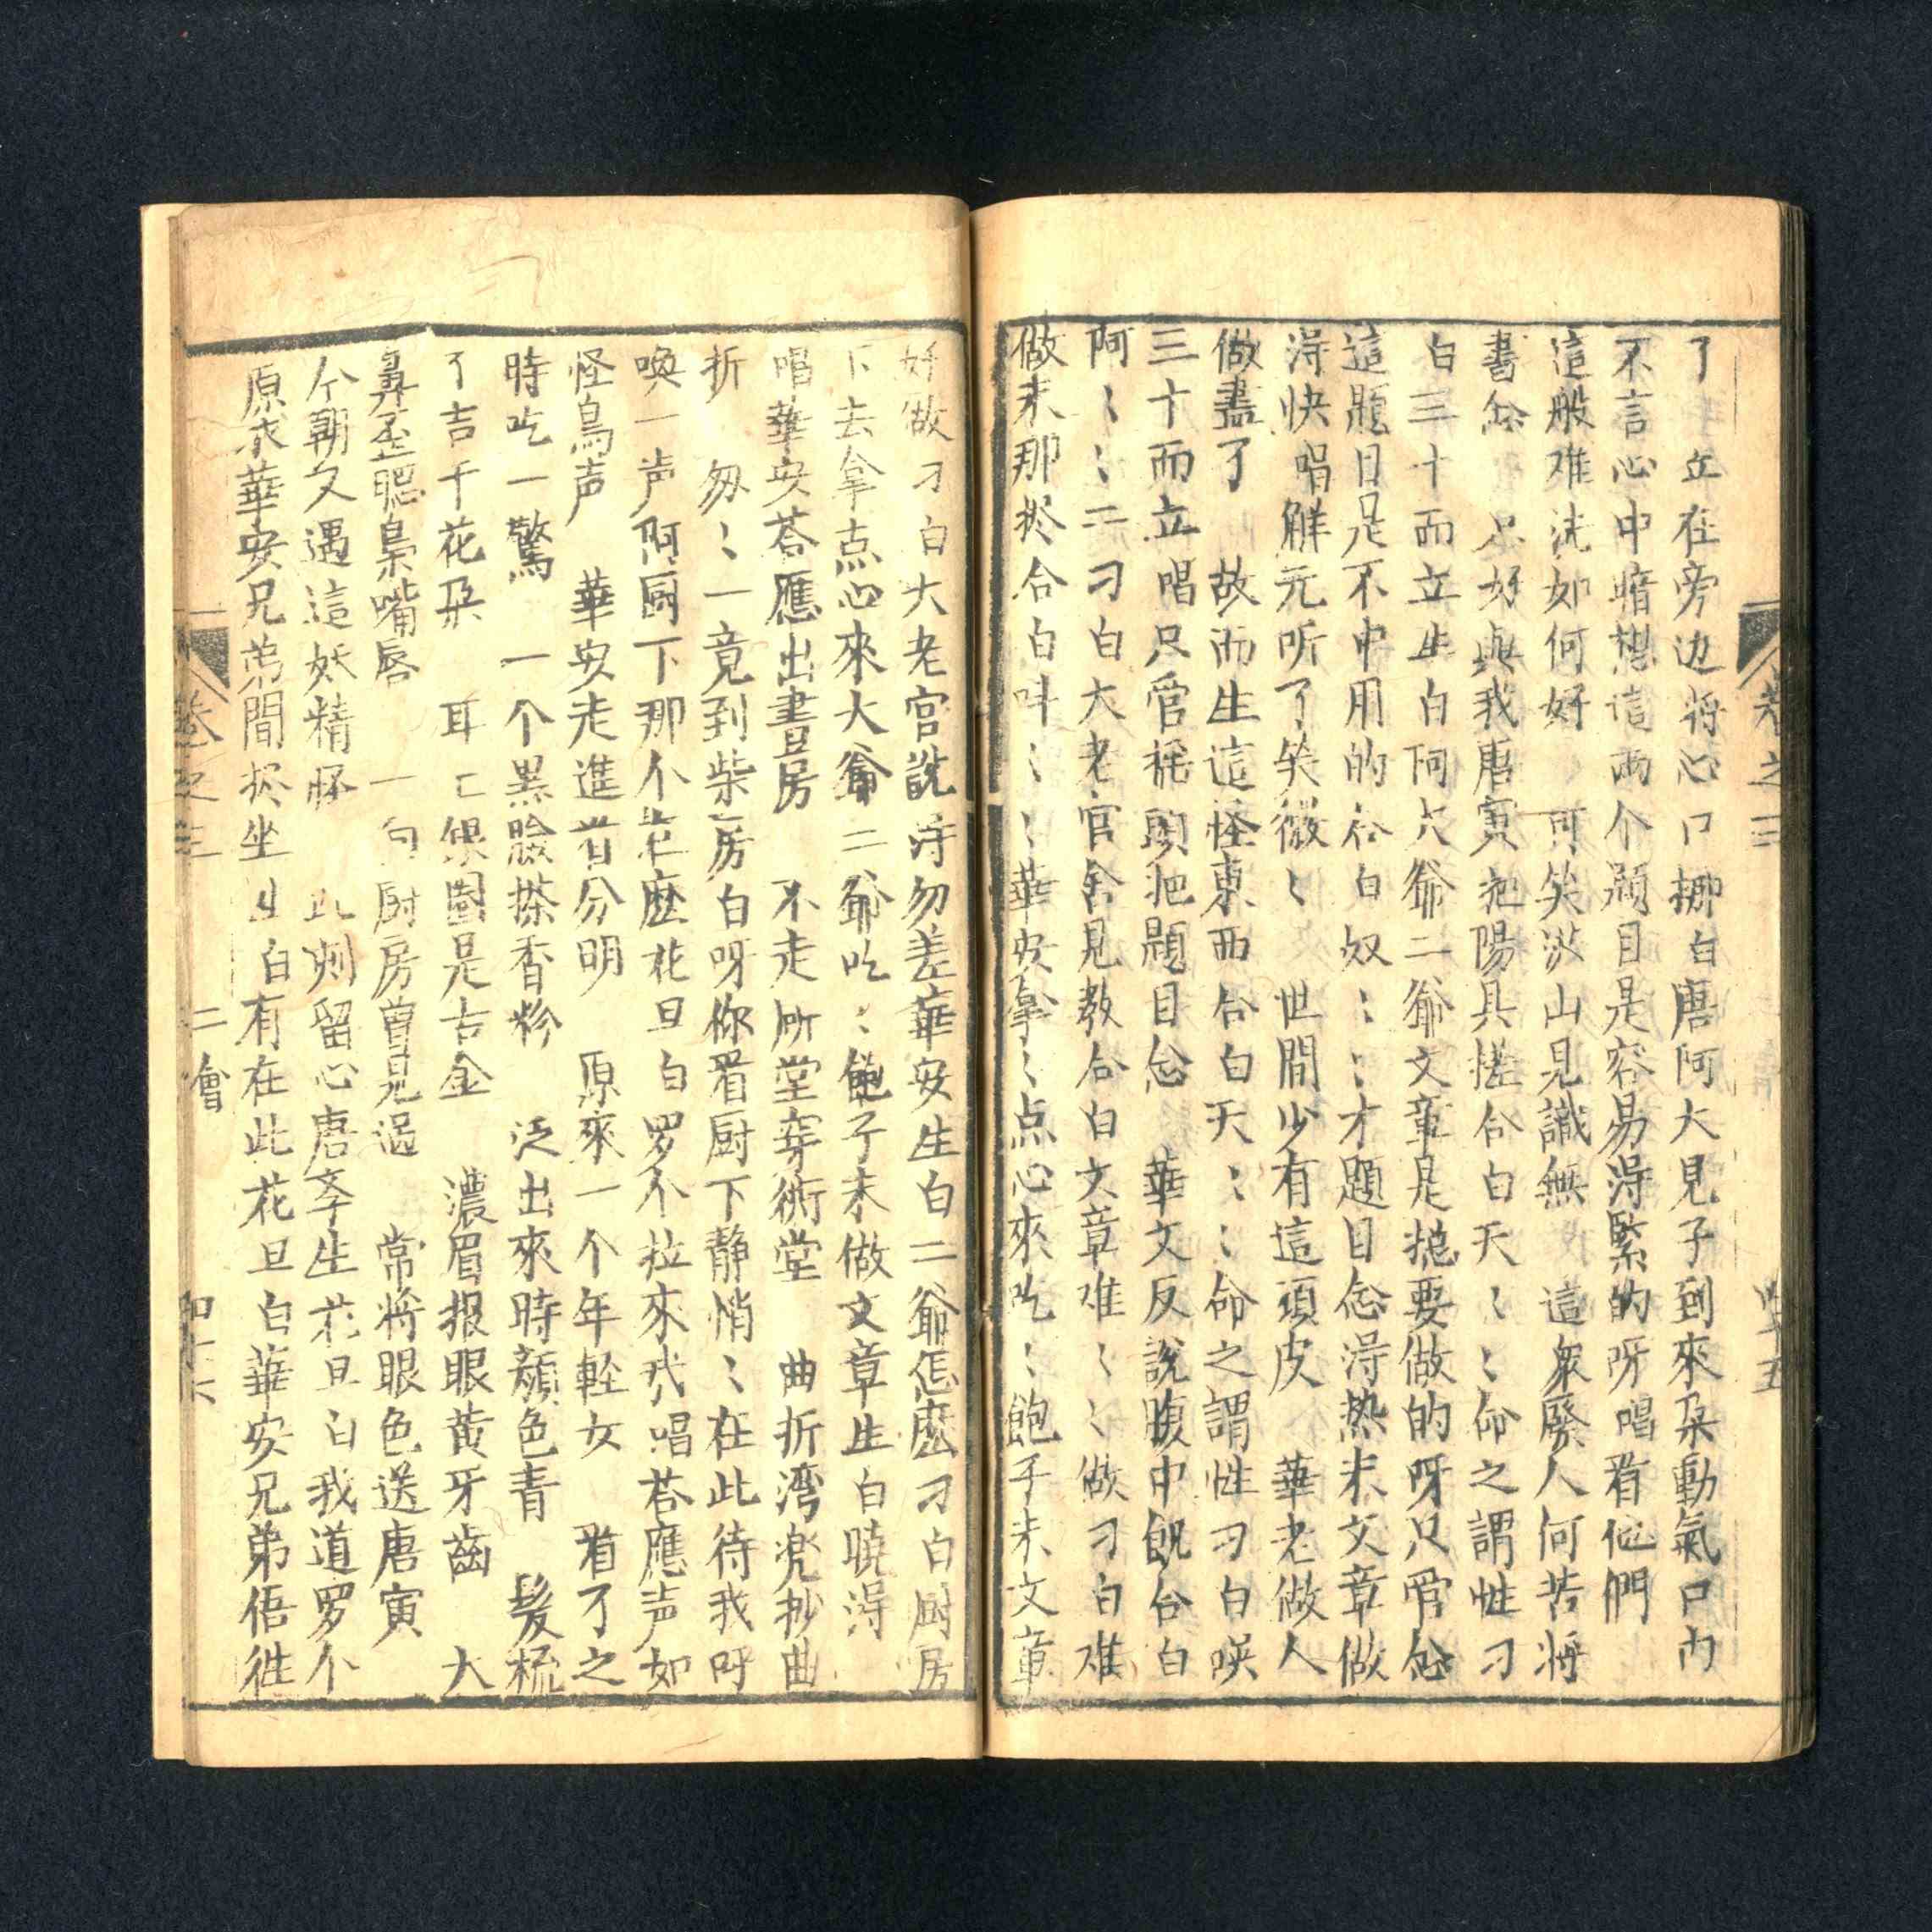 了　立在旁边将心口挪白唐阿大見子到來朶動氣口内
不言心中暗想這両个題目是容易淂緊的呀唱看他們
這般难法如何好　可笑沙山見識無　這衆廢人何苦将
書念　只好與我唐寅把陽具搓合白天〻〻命之謂性刁
白三十而立生白阿大爺二爺文章是捴要做的呀只管念
這題目是不中用的合白奴〻〻才題目念淂热未文章做
淂快唱解元听了笑微〻　世間少有這頑皮　華老做人
做盡了　故而生這怪東西合白天〻〻命之謂性刁白唉
三十而立唱只管摇頭把題目念　華文反說腹中飢合白
阿〻〻二刁白大老官舍見教合白文章难〻〻做刁白难
做未那扵合白吽〻〻華安拿〻点心來吃〻飽子未文章
好做刁白大老官説淂勿差華安生白二爺怎麽刁白厨房
下去拿点心來大爺二爺吃〻飽子未做文章生白曉淂
唱華安荅應出書房　不走㕔堂穿衖堂　曲折湾兠抄曲
折　匆〻一竟到柴房白呀你看厨下静悄〻在此待我呌
喚一声阿厨下那个在麽花旦白罗个拉來哉唱荅應声如
怪鳥声　華安走進看分明　原來一个年軽女　看了之
時吃一驚　一个黒臉搽香粉　泛出來時顔色青　髪梳
了吉千花朶　耳匚銀圈是古金　濃眉报眼黄牙齒　大
鼻歪腮梟嘴唇　一向厨房曽見過　常将眼色送唐寅
今朝又遇這妖精怀　此刻留心唐李生花旦白我道罗个
原求華安兄弟間扵坐生白有在此花旦白華安兄弟俉徃
卷之三　四十五
卷之三　二會　四十六